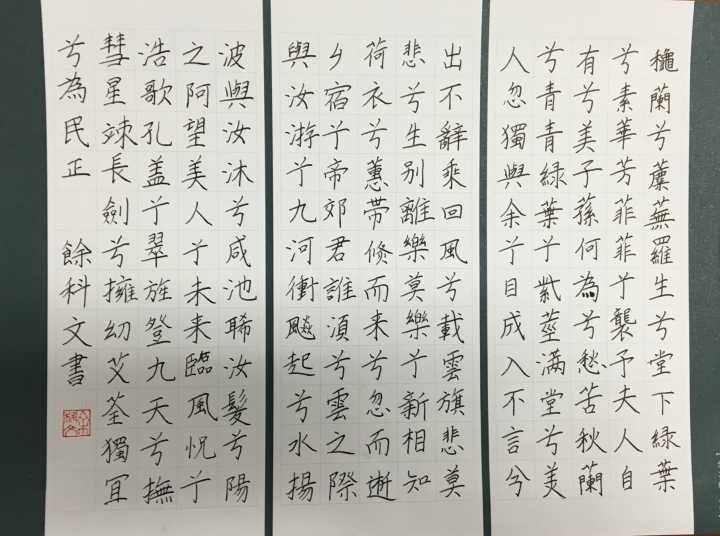 穐蘭兮蘪蕪羅生兮堂下綠葉
兮素華芳菲菲兮襲予夫人自
有兮美子蓀何為兮愁苦秋蘭
兮青青綠葉兮紫莖滿堂兮美
人忽獨與余兮目成入不言兮
出不辭乘回風兮載雲旗悲莫
悲兮生别離樂莫樂兮新相知
荷衣兮蕙帶倏而来兮忽而逝
夕宿兮帝郊君誰須兮雲之際
與汝游兮九河衝飈起兮水揚
波與汝沐兮咸池晞汝髮兮陽
之阿望美人兮未来臨風怳兮
浩歌孔盖兮翠旍登九天兮撫
彗星竦長劍兮擁幼艾荃獨宜
兮為民正 餘科文書